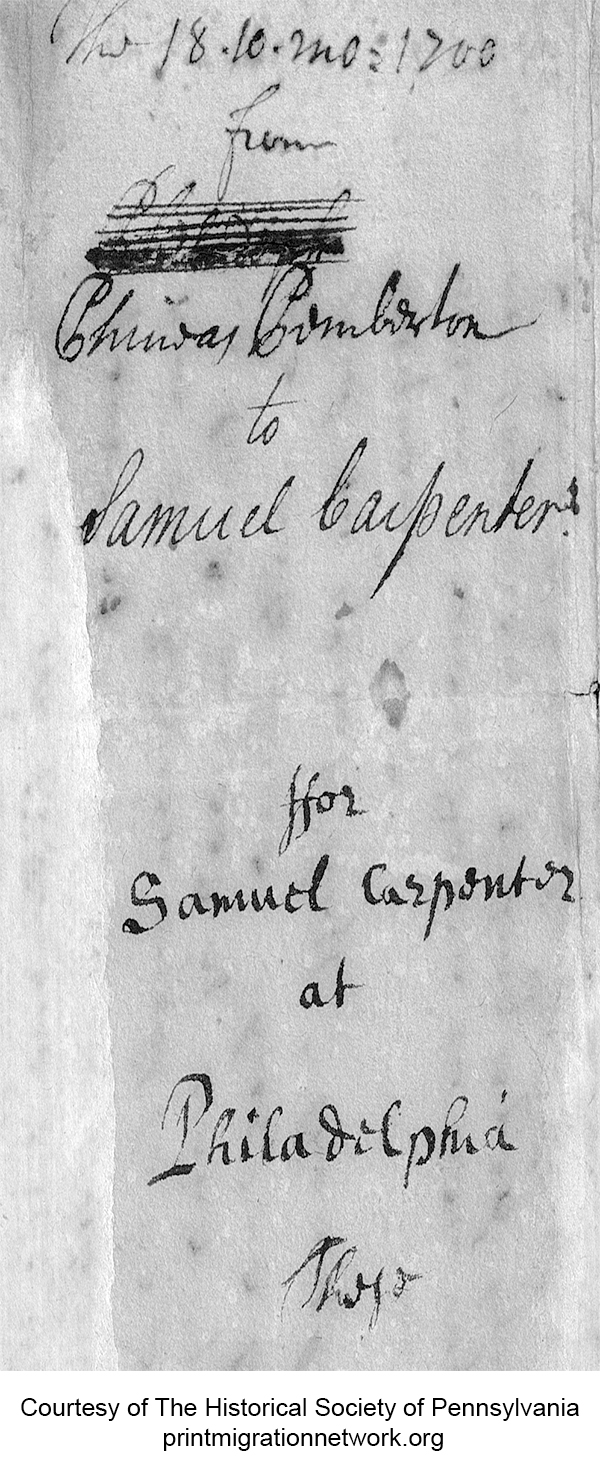 The 18.10.mo:1700
from
Phineas Pemberton
to
Samuel Carpenter.
ffor
Samuel Carpenter
at
Philadelphia
These
Courtesy of The Historical Society of Pennsylvania
printmigrationnetwork.org